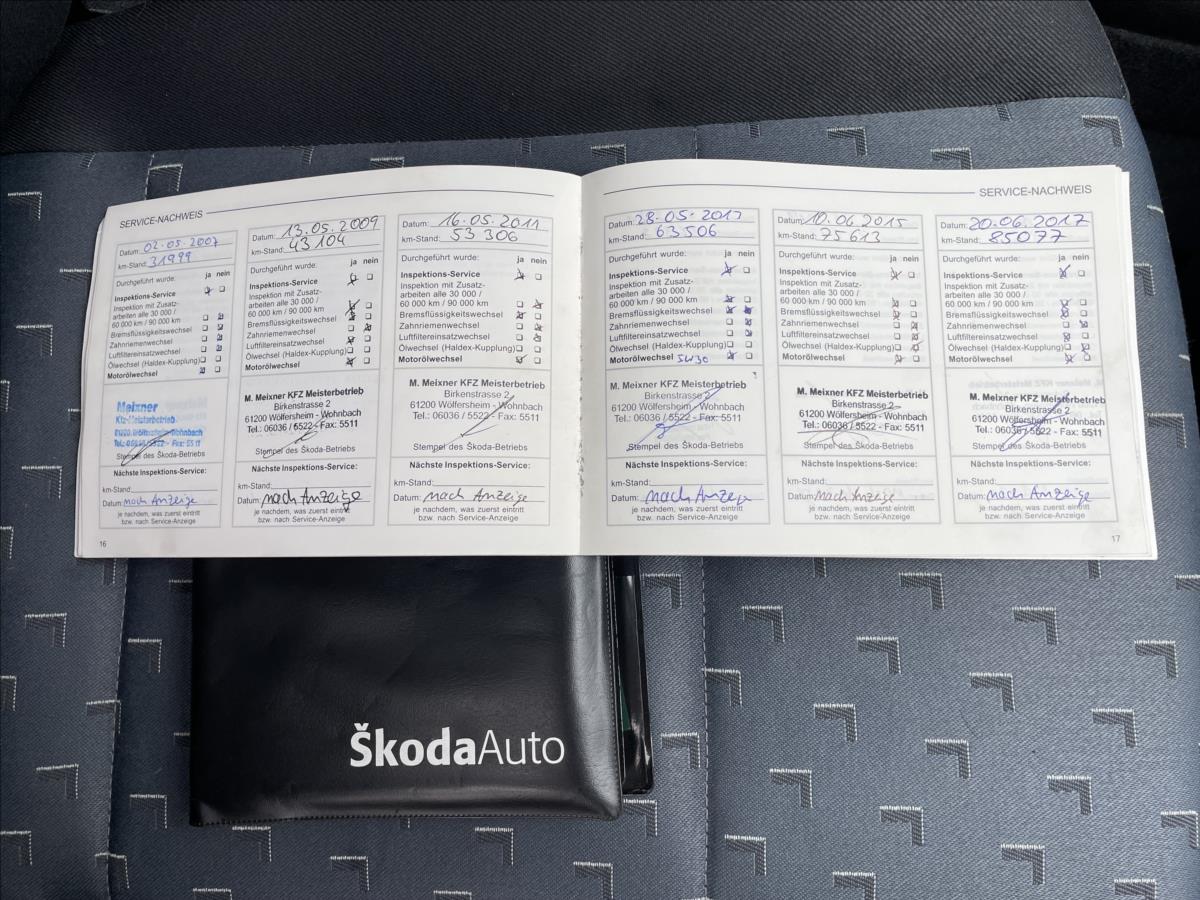 SERVICE-NACHWEIS
Datum: 02.05.2007
km-Stand: 31999
Durchgeführt wurde: ja nein
Inspektions-Service
Inspektion mit Zusatz-
arbeiten alle 30 000 /
60 000 km / 90 000 km
Bremsflüssigkeitswechsel
Zahnriemenwechsel
Luftfiltereinsatzwechsel
Ölwechsel (Haldex-Kupplung)
Motorölwechsel
Meixner
Kfz-Meisterbetrieb
61200 Wölfersheim-Wohnbach
Tel.: 06036/5522 - Fax: 5511
Stempel des Škoda-Betriebs
Nächste Inspektions-Service:
km-Stand:
Datum: nach Anzeige
je nachdem, was zuerst eintritt
bzw. nach Service-Anzeige
16
Datum: 13.05.2009
km-Stand: 43104
Durchgeführt wurde: ja nein
Inspektions-Service
Inspektion mit Zusatz-
arbeiten alle 30 000 /
60 000 km / 90 000 km
Bremsflüssigkeitswechsel
Zahnriemenwechsel
Luftfiltereinsatzwechsel
Ölwechsel (Haldex-Kupplung)
Motorölwechsel
M. Meixner KFZ Meisterbetrieb
Birkenstrasse 2
61200 Wölfersheim - Wohnbach
Tel.: 06036 / 5522 - Fax: 5511
Stempel des Škoda-Betriebs
Nächste Inspektions-Service:
km-Stand:
Datum: nach Anzeige
je nachdem, was zuerst eintritt
bzw. nach Service-Anzeige
Datum: 16.05.2011
km-Stand: 53306
Durchgeführt wurde: ja nein
Inspektions-Service
Inspektion mit Zusatz-
arbeiten alle 30 000 /
60 000 km / 90 000 km
Bremsflüssigkeitswechsel
Zahnriemenwechsel
Luftfiltereinsatzwechsel
Ölwechsel (Haldex-Kupplung)
Motorölwechsel
M. Meixner KFZ Meisterbetrieb
Birkenstrasse 2
61200 Wölfersheim - Wohnbach
Tel.: 06036 / 5522 - Fax: 5511
Stempel des Škoda-Betriebs
Nächste Inspektions-Service:
km-Stand:
Datum: nach Anzeige
je nachdem, was zuerst eintritt
bzw. nach Service-Anzeige
SERVICE-NACHWEIS
Datum: 28.05.
km-Stand: 63506
Durchgeführt wurde: ja nein
Inspektions-Service
Inspektion mit Zusatz-
arbeiten alle 30 000 /
60 000 km / 90 000 km
Bremsflüssigkeitswechsel
Zahnriemenwechsel
Luftfiltereinsatzwechsel
Ölwechsel (Haldex-Kupplung)
Motorölwechsel 5W30
M. Meixner KFZ Meisterbetrieb
Birkenstrasse 2
61200 Wölfersheim - Wohnbach
Tel.: 06036 / 5522 - Fax: 5511
Stempel des Škoda-Betriebs
Nächste Inspektions-Service:
km-Stand:
Datum: nach Anzeige
je nachdem, was zuerst eintritt
bzw. nach Service-Anzeige
Datum: 10.06.2015
km-Stand: 75613
Durchgeführt wurde: ja nein
Inspektions-Service
Inspektion mit Zusatz-
arbeiten alle 30 000 /
60 000 km / 90 000 km
Bremsflüssigkeitswechsel
Zahnriemenwechsel
Luftfiltereinsatzwechsel
Ölwechsel (Haldex-Kupplung)
Motorölwechsel
M. Meixner KFZ Meisterbetrieb
Birkenstrasse 2
61200 Wölfersheim - Wohnbach
Tel.: 06036 / 5522 - Fax: 5511
Stempel des Škoda-Betriebs
Nächste Inspektions-Service:
km-Stand:
Datum: nach Anzeige
je nachdem, was zuerst eintritt
bzw. nach Service-Anzeige
Datum: 20.06.2017
km-Stand: 85077
Durchgeführt wurde: ja nein
Inspektions-Service
Inspektion mit Zusatz-
arbeiten alle 30 000 /
60 000 km / 90 000 km
Bremsflüssigkeitswechsel
Zahnriemenwechsel
Luftfiltereinsatzwechsel
Ölwechsel (Haldex-Kupplung)
Motorölwechsel
M. Meixner KFZ Meisterbetrieb
Birkenstrasse 2
61200 Wölfersheim - Wohnbach
Tel.: 06036 / 5522 - Fax: 5511
Stempel des Škoda-Betriebs
Nächste Inspektions-Service:
km-Stand:
Datum: nach Anzeige
je nachdem, was zuerst eintritt
bzw. nach Service-Anzeige
17
ŠkodaAuto